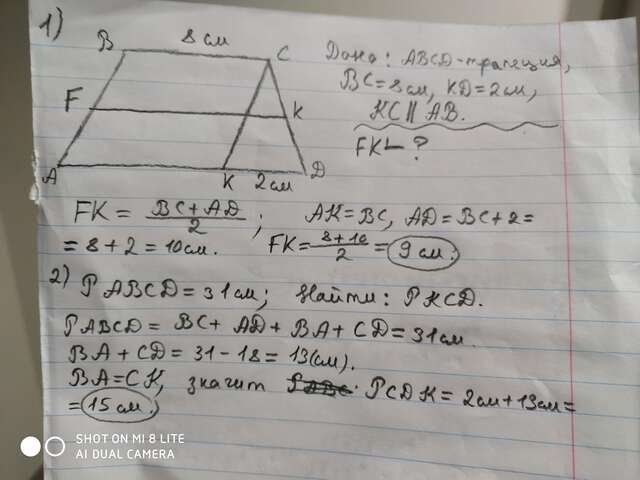 1)
B 8 см C
Дано: ABCD-трапеция,
BC=8см, KD=2см,
KC || AB.
FK - ?
F K
A K 2см D
FK = BC+AD / 2 ; AK=BC, AD=BC+2=
= 8+2=10см. FK= 8+10 / 2 = 9 см.
2) P ABCD = 31 см; Найти: PKCD.
PABCD = BC+ AD+BA+CD=31см.
BA+CD=31-18=13(см).
BA=CK, значит PCDK=2см+13см=
=15 см.
SHOT ON MI 8 LITE
AI DUAL CAMERA